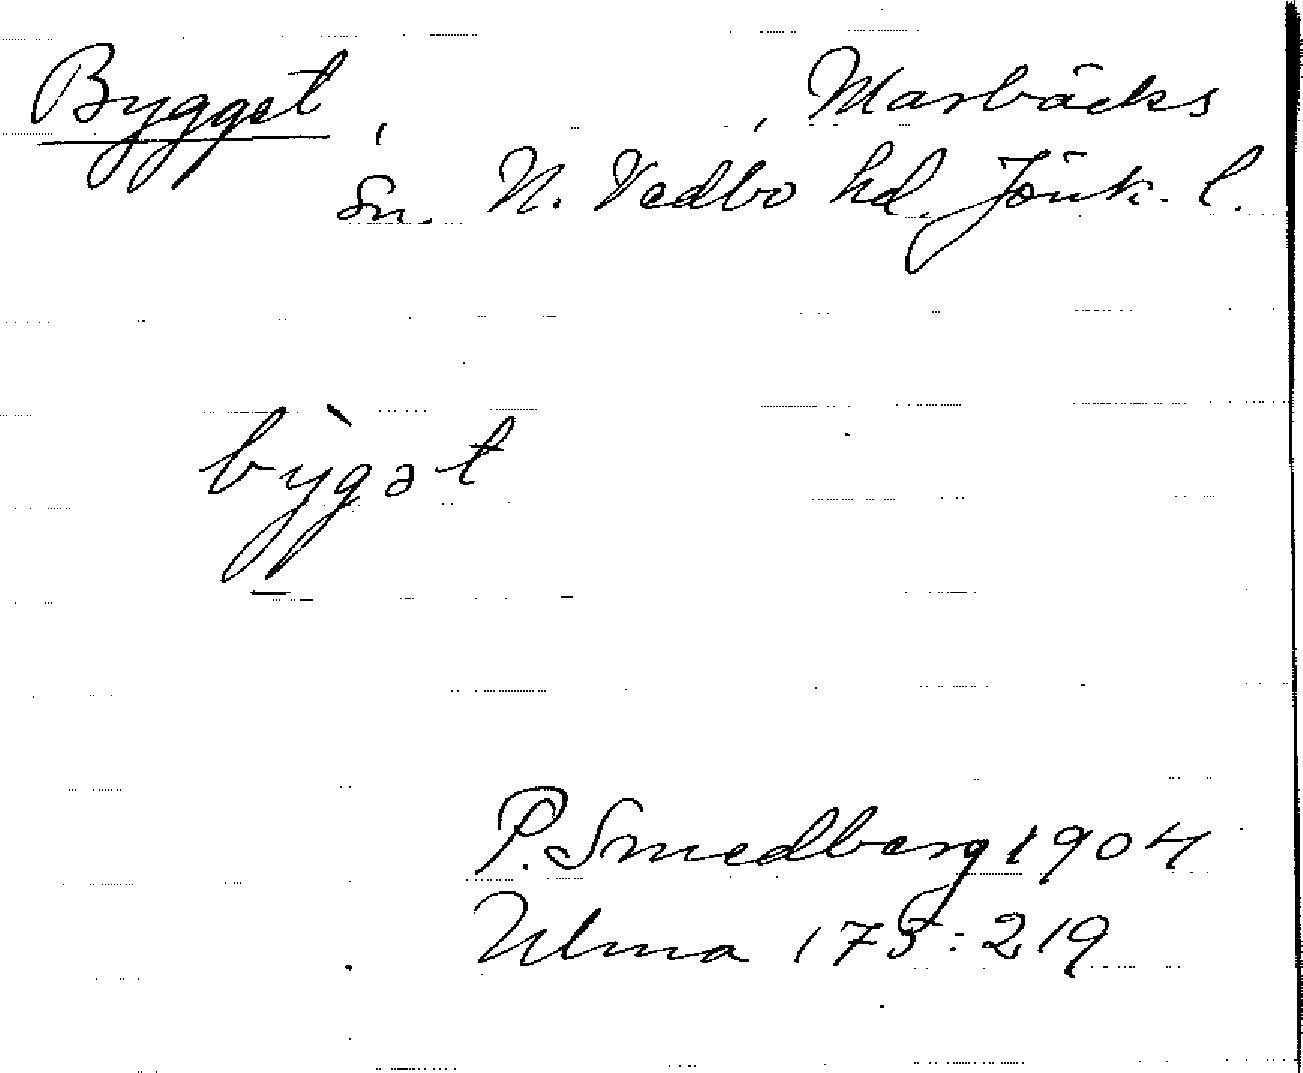 Bygget, , Marbäcks
Sn. N. Vedbo hd. Jönk. l.
bỳgət
P. Smedberg 1904
Ulma 173:219